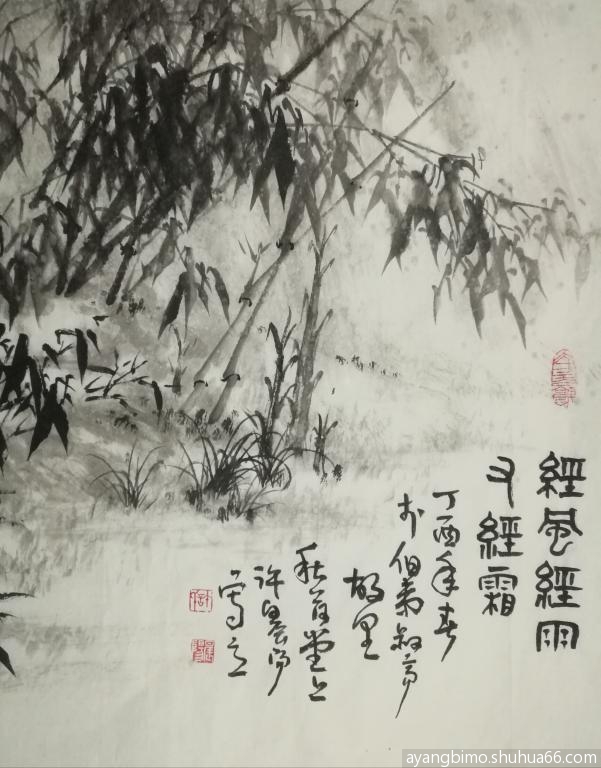 經風經雨
又經霜
丁酉年春
於伯夷叔齊
故里
堂上
許
寫之
ayangbimo.shuhua66.com